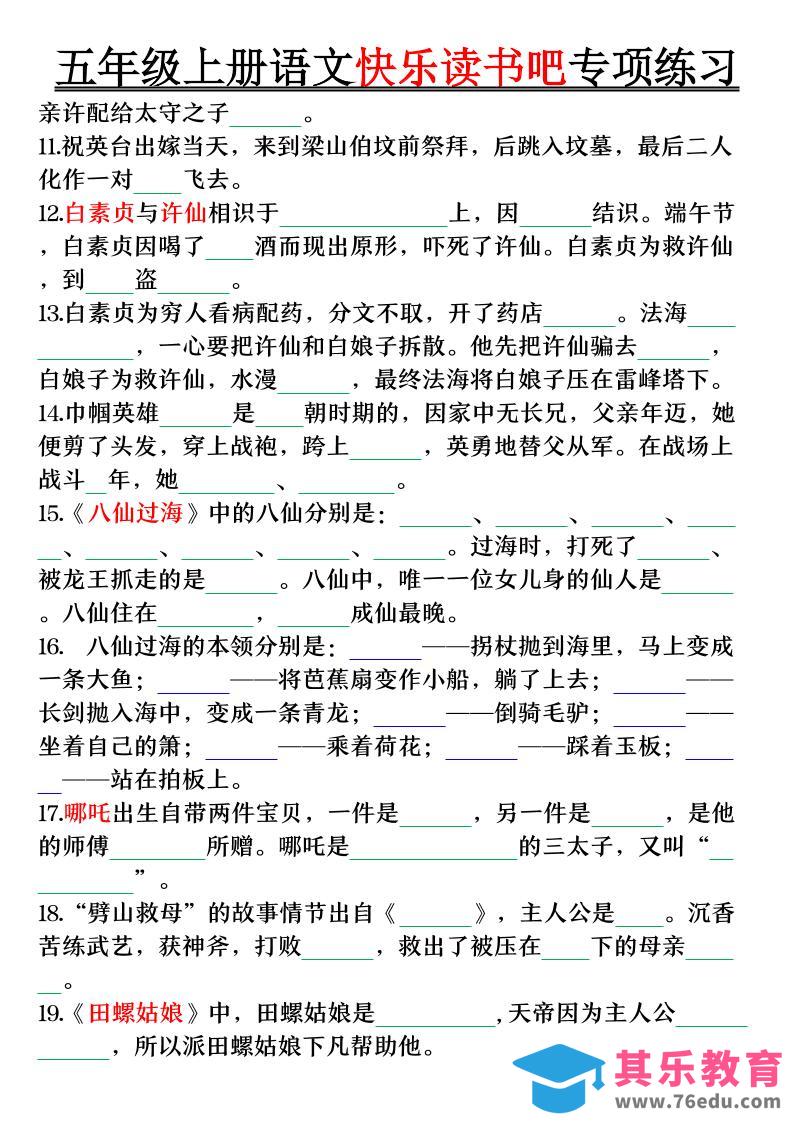 五年级上册语文快乐读书吧专项练习
亲许配给太守之子______。
11.祝英台出嫁当天，来到梁山伯坟前祭拜，后跳入坟墓，最后二人
化作一对____飞去。
12.白素贞与许仙相识于______________上，因______结识。端午节
，白素贞因喝了____酒而现出原形，吓死了许仙。白素贞为救许仙
，到____盗______。
13.白素贞为穷人看病配药，分文不取，开了药店______。法海____
________，一心要把许仙和白娘子拆散。他先把许仙骗去______，
白娘子为救许仙，水漫______，最终法海将白娘子压在雷峰塔下。
14.巾帼英雄______是____朝时期的，因家中无长兄，父亲年迈，她
便剪了头发，穿上战袍，跨上______，英勇地替父从军。在战场上
战斗__年，她________、________。
15.《八仙过海》中的八仙分别是：______、______、______、____
__、______、______、______、______。过海时，打死了______、
被龙王抓走的是______。八仙中，唯一一位女儿身的仙人是______
。八仙住在________，______成仙最晚。
16. 八仙过海的本领分别是：______——拐杖抛到海里，马上变成
一条大鱼；______——将芭蕉扇变作小船，躺了上去；______——
长剑抛入海中，变成一条青龙；______——倒骑毛驴；______——
坐着自己的箫；______——乘着荷花；______——踩着玉板；____
__——站在拍板上。
17.哪吒出生自带两件宝贝，一件是______，另一件是______，是他
的师傅________所赠。哪吒是______________的三太子，又叫“__
________”。
18.“劈山救母”的故事情节出自《______》，主人公是____。沉香
苦练武艺，获神斧，打败______，救出了被压在____下的母亲____
__。
19.《田螺姑娘》中，田螺姑娘是__________,天帝因为主人公______
______，所以派田螺姑娘下凡帮助他。
其乐教育
www.76edu.com